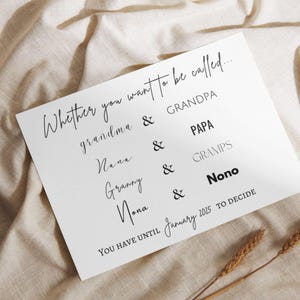 Whether you want to be called...
grandma & GRANDPA
Nana & PAPA
Granny & GRAMPS
Nona & Nono
YOU HAVE UNTIL January 2025 TO DECIDE